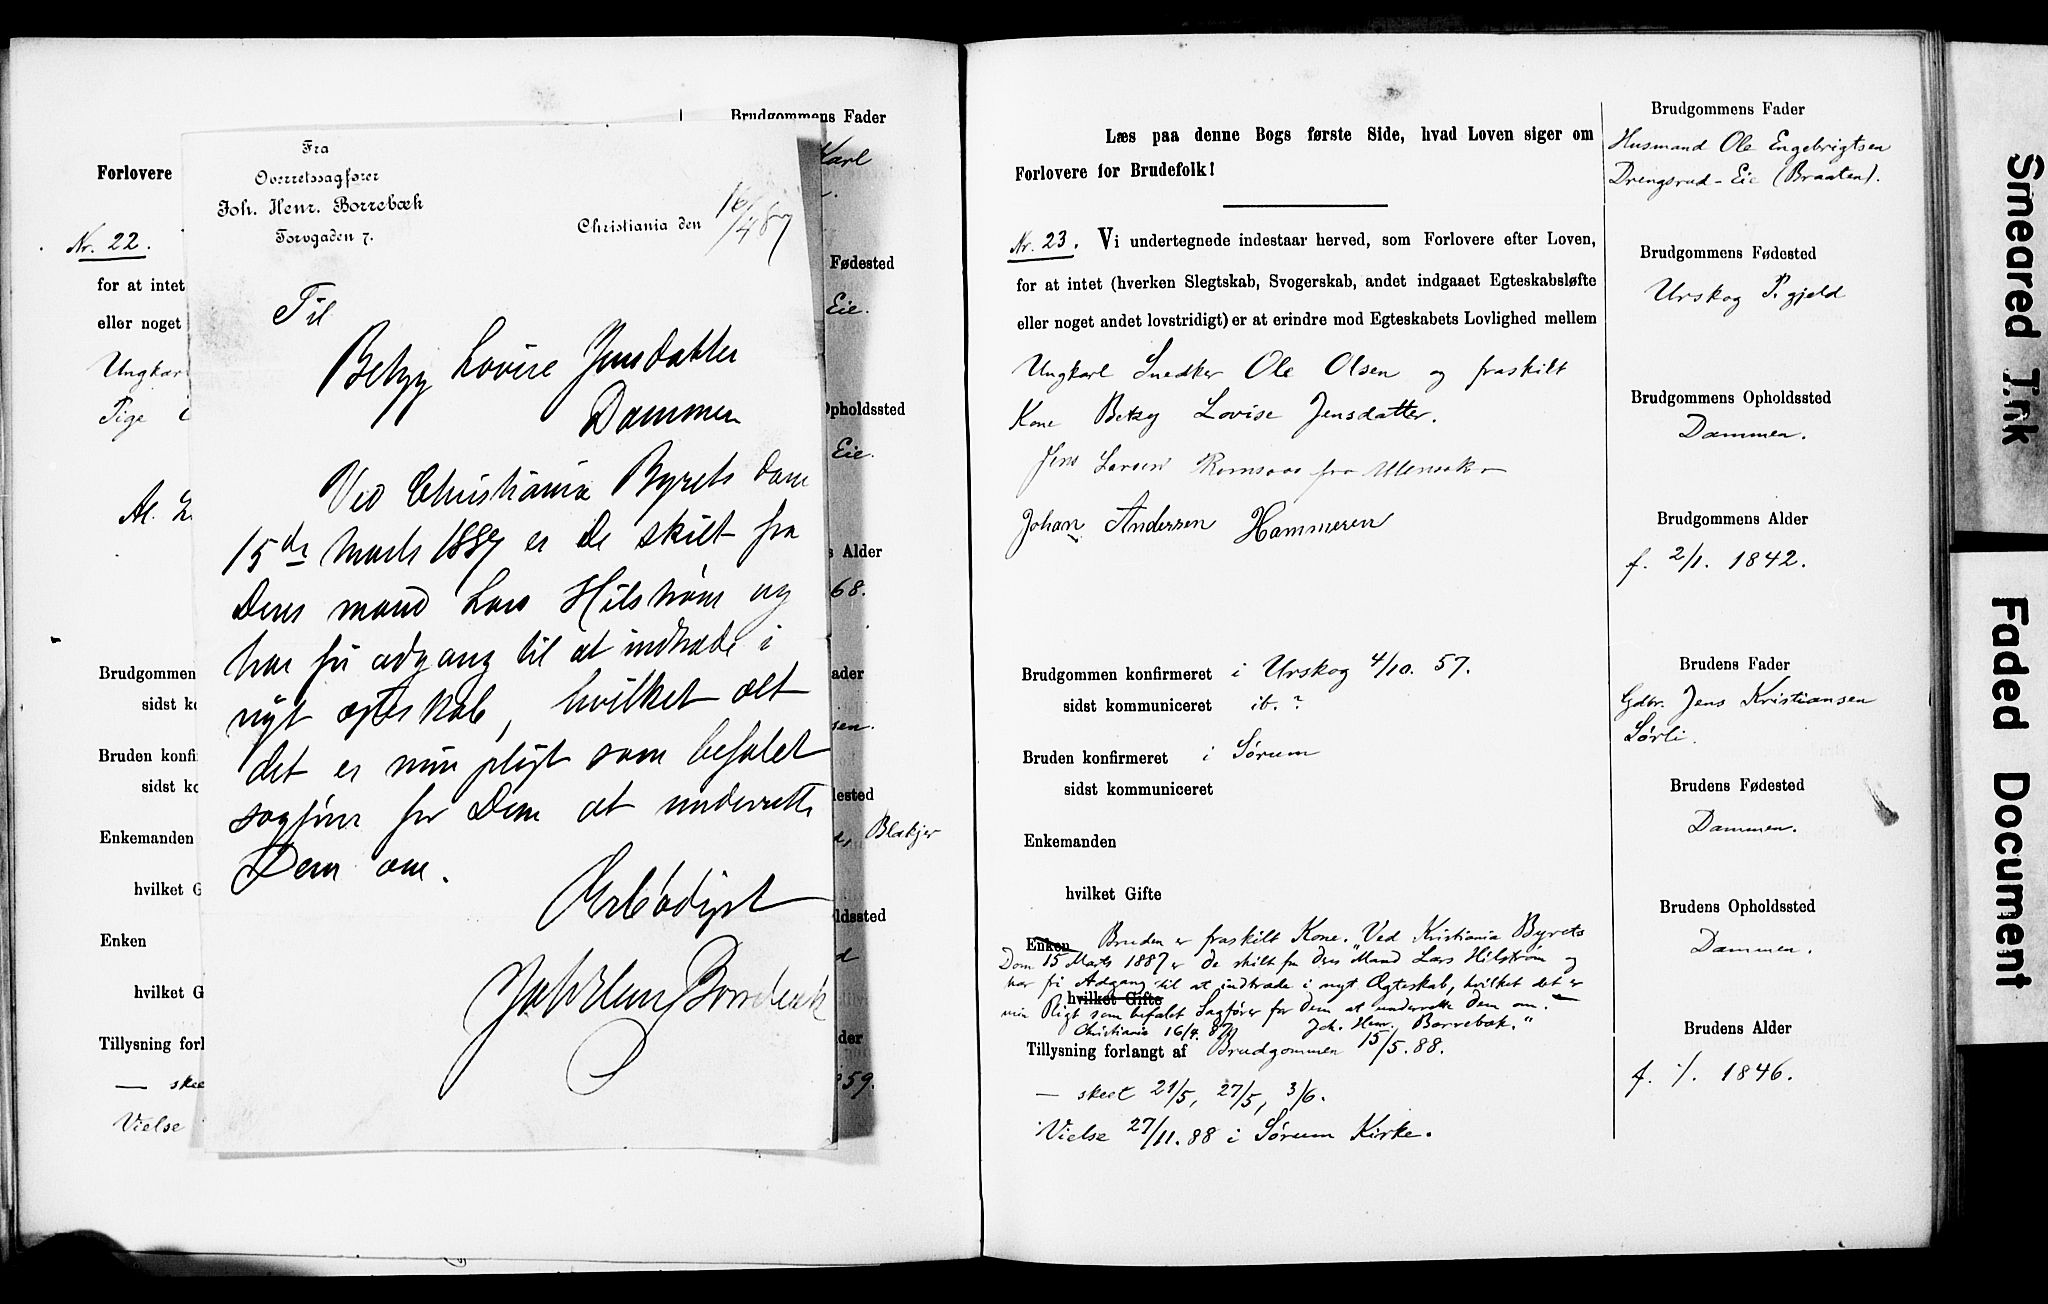 Brudgommens Fader
Karl
Forlovere
Nr. 22.
for at intet
eller noget
Ungkar
Pige
Fødested
Eie.
Opholdssted
Eie.
Alder
68.
Brudgommen
sidst
Bruden konfi
sidst
Enkemanden
hvilket G
Enken
hvilket G
Tillysning forl
— skee
Vielse
Blakjer
59.
Fra
Overretssagfører
Joh. Henr. Borrebæk
Torvgaden 7.
Christiania den 16/4 87
Til
Betzy Lovise Jensdatter
Dammen
Ved Christiania Byrets Dom
15de Marts 1887 er De skilt fra
Deres mand Lars Hilstrøm og
har fri adgang til at indtræde i
nyt ægteskab, hvilket alt
det er min pligt som befalet
sagfører for Dem at underrette
Dem om.
Ærbødigst
Joh Henr Borrebæk
Læs paa denne Bogs første Side, hvad Loven siger om
Forlovere for Brudefolk!
Nr. 23. Vi undertegnede indestaar herved, som Forlovere efter Loven,
for at intet (hverken Slegtskab, Svogerskab, andet indgaaet Egteskabsløfte
eller noget andet lovstridigt) er at erindre mod Egteskabets Lovlighed mellem
Ungkarl Snedker Ole Olsen og fraskilt
Kone Betzy Lovise Jensdatter.
Jens Larsen Romsaas fra Ullensaker
Johan Andersen Hammeren
Brudgommen konfirmeret i Urskog 4/10. 57.
sidst kommuniceret ib. ?
Bruden konfirmeret i Sørum
sidst kommuniceret
Enkemanden
hvilket Gifte
Enken Bruden er fraskilt Kone. "Ved Kristiania Byrets
Dom 15 Marts 1887 er De skilt fra Deres Mand Lars Hilstrøm og
har fri Adgang til at indtræde i nyt Ægteskab, hvilket det er
hvilket Gifte
min Pligt som befalet Sagfører for Dem at underrette Dem om. —
Christiania 16/4. 87 Joh. Henr. Borrebæk."
Tillysning forlangt af Brudgommen 15/5. 88.
— skeet 21/5, 27/5, 3/6.
Vielse 27/11. 88 i Sørum Kirke.
Brudgommens Fader
Husmand Ole Engebrigtsen
Drengsrud-Eie (Braaten).
Brudgommens Fødested
Urskog P.gjeld
Brudgommens Opholdssted
Dammen.
Brudgommens Alder
f. 2/1. 1842.
Brudens Fader
Gdbr. Jens Kristiansen
Sørli.
Brudens Fødested
Dammen.
Brudens Opholdssted
Dammen.
Brudens Alder
f. /. 1846.
Smeared Ink
Faded Document